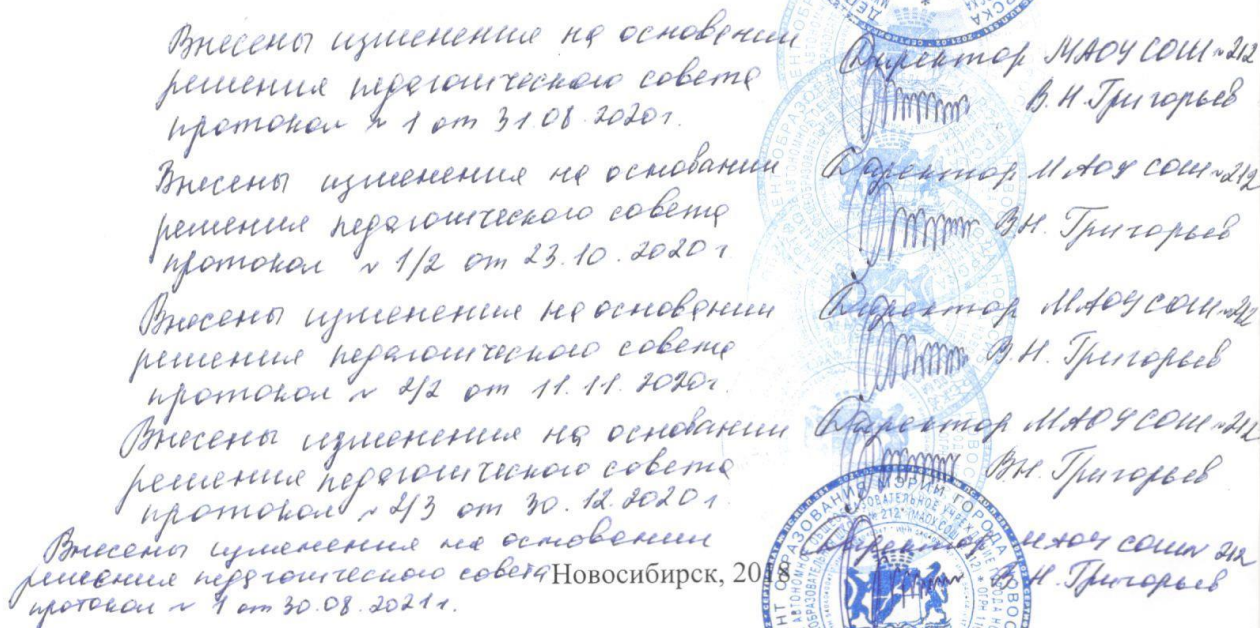 Внесены изменения на основании
решения педагогического совета
протокол № 1 от 31.08.2020г.
Директор МАОУ СОШ №212
В.Н. Григорьев
Внесены изменения на основании
решения педагогического совета
протокол № 1/2 от 23.10.2020г
Директор МАОУ СОШ №212
В.Н. Григорьев
Внесены изменения на основании
решения педагогического совета
протокол № 2/2 от 11.11.2020г.
Директор МАОУ СОШ №212
В.Н. Григорьев
Внесены изменения на основании
решения педагогического совета
протокол № 2/3 от 30.12.2020г.
Директор МАОУ СОШ №212
В.Н. Григорьев
Внесены изменения на основании
решения педагогического совета
протокол № 1 от 30.08.2021г.
Директор МАОУ СОШ № 212
В.Н. Григорьев
Новосибирск,
ОБРАЗОВАНИЯ МЭРИИ ГОРОДА